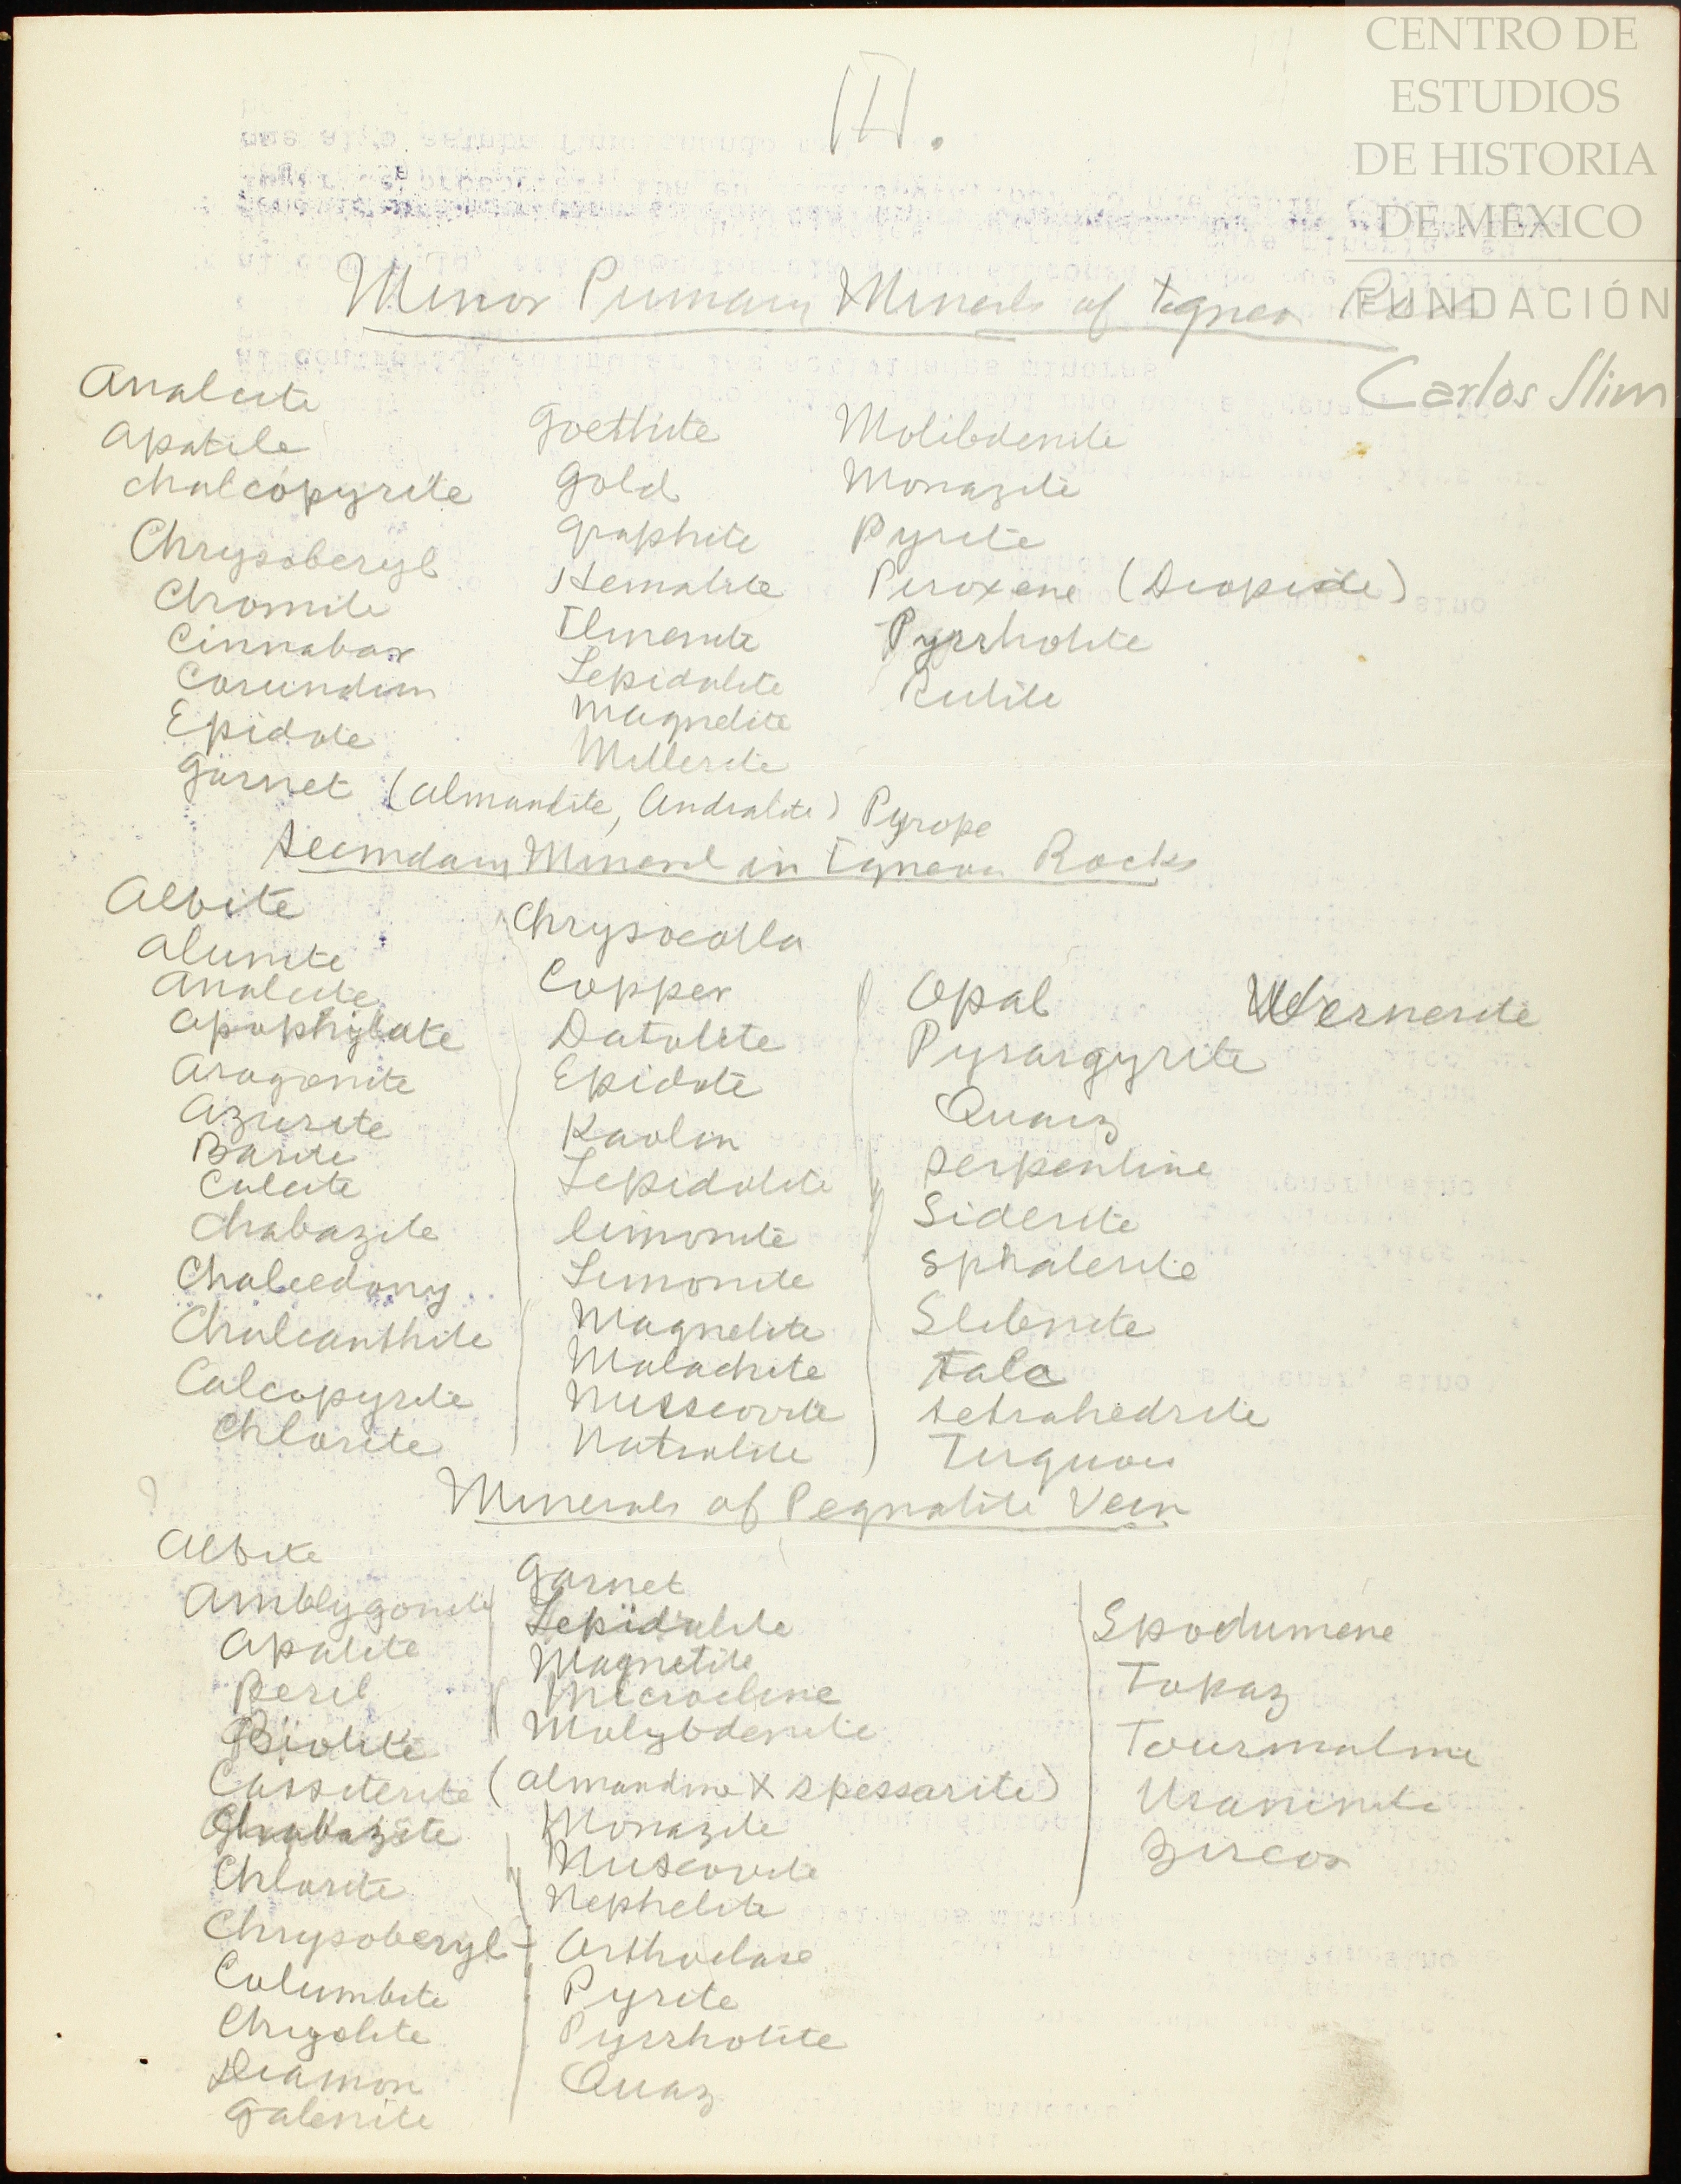 III.
CENTRO DE
ESTUDIOS
DE HISTORIA
DE MÉXICO
FUNDACIÓN
Carlos Slim
Minor Primary Minerals of Igneos
Analcite
Apatite
chalcopyrite
Chrysoberyl
Chromite
Cinnabar
Corundum
Epidote
Garnet (almandite, Andradite) Pyrope
Goethite
Gold
Graphite
Hematite
Ilmenite
Lepidolite
Magnetite
Millerite
Molibdenite
Monazite
Pyrite
Piroxene (Diopside)
Pyrrhotite
Rutile
Secondary Mineral in Igneous Rocks
Albite
Alunite
Analcite
Apophyllite
Aragonite
Azurite
Barite
Calcite
Chabazite
Chalcedony
Chalcanthite
Calcopyrite
Chlorite
Chrysocolla
Copper
Datolite
Epidote
Kaolin
Lepidolite
limonite
Limonite
Magnetite
Malachite
Muscovite
Natrolite
Opal
Pyrargyrite
Quarz
serpentine
Siderite
sphalerite
Stibnite
talc
tetrahedrite
Turquois
Wernerite
Minerals of Pegmatite Vein
Albite
Amblygonite
Apatite
Beril
Biotite
Cassiterite
Chabazite
Chlorite
Chrysoberyl
Columbite
Chryolite
Diamon
Galenite
Garnet
Lepidolite
Magnetite
Microcline
Molybdenite
(almandine X spessarite)
Monazite
Muscovite
Nephelite
Orthoclase
Pyrite
Pyrrhotite
Quaz
Spodumene
Topaz
Tourmaline
Uraninite
Zircon